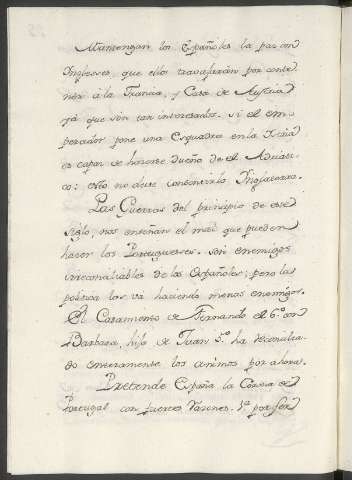 Mantengan los Españoles la paz con
Ingleses, que ellos travajarán por conte-
ner á la Francia, y Casa de Austria
yá que són tan interesados. si el em-
perador pone una Esquadra en la
es capaz de hacerse dueño de el Adriati-
co: esto no deve consentirlo Inglaterra.
Las Guerras del principio de este
siglo, nos enseñan el mal que pueden
hacer los Portugueses. són enemigos
irreconciliables de los Españoles; pero la
politica los va haciendo menos enemigos.
El Casamiento de Fernando el 6º con
Barbara, hija de Juan 5º ha reconcilia-
do enteramente los animos por ahora.
Pretende España la Corona de
Portugal con fuertes razones. 1ª por ser